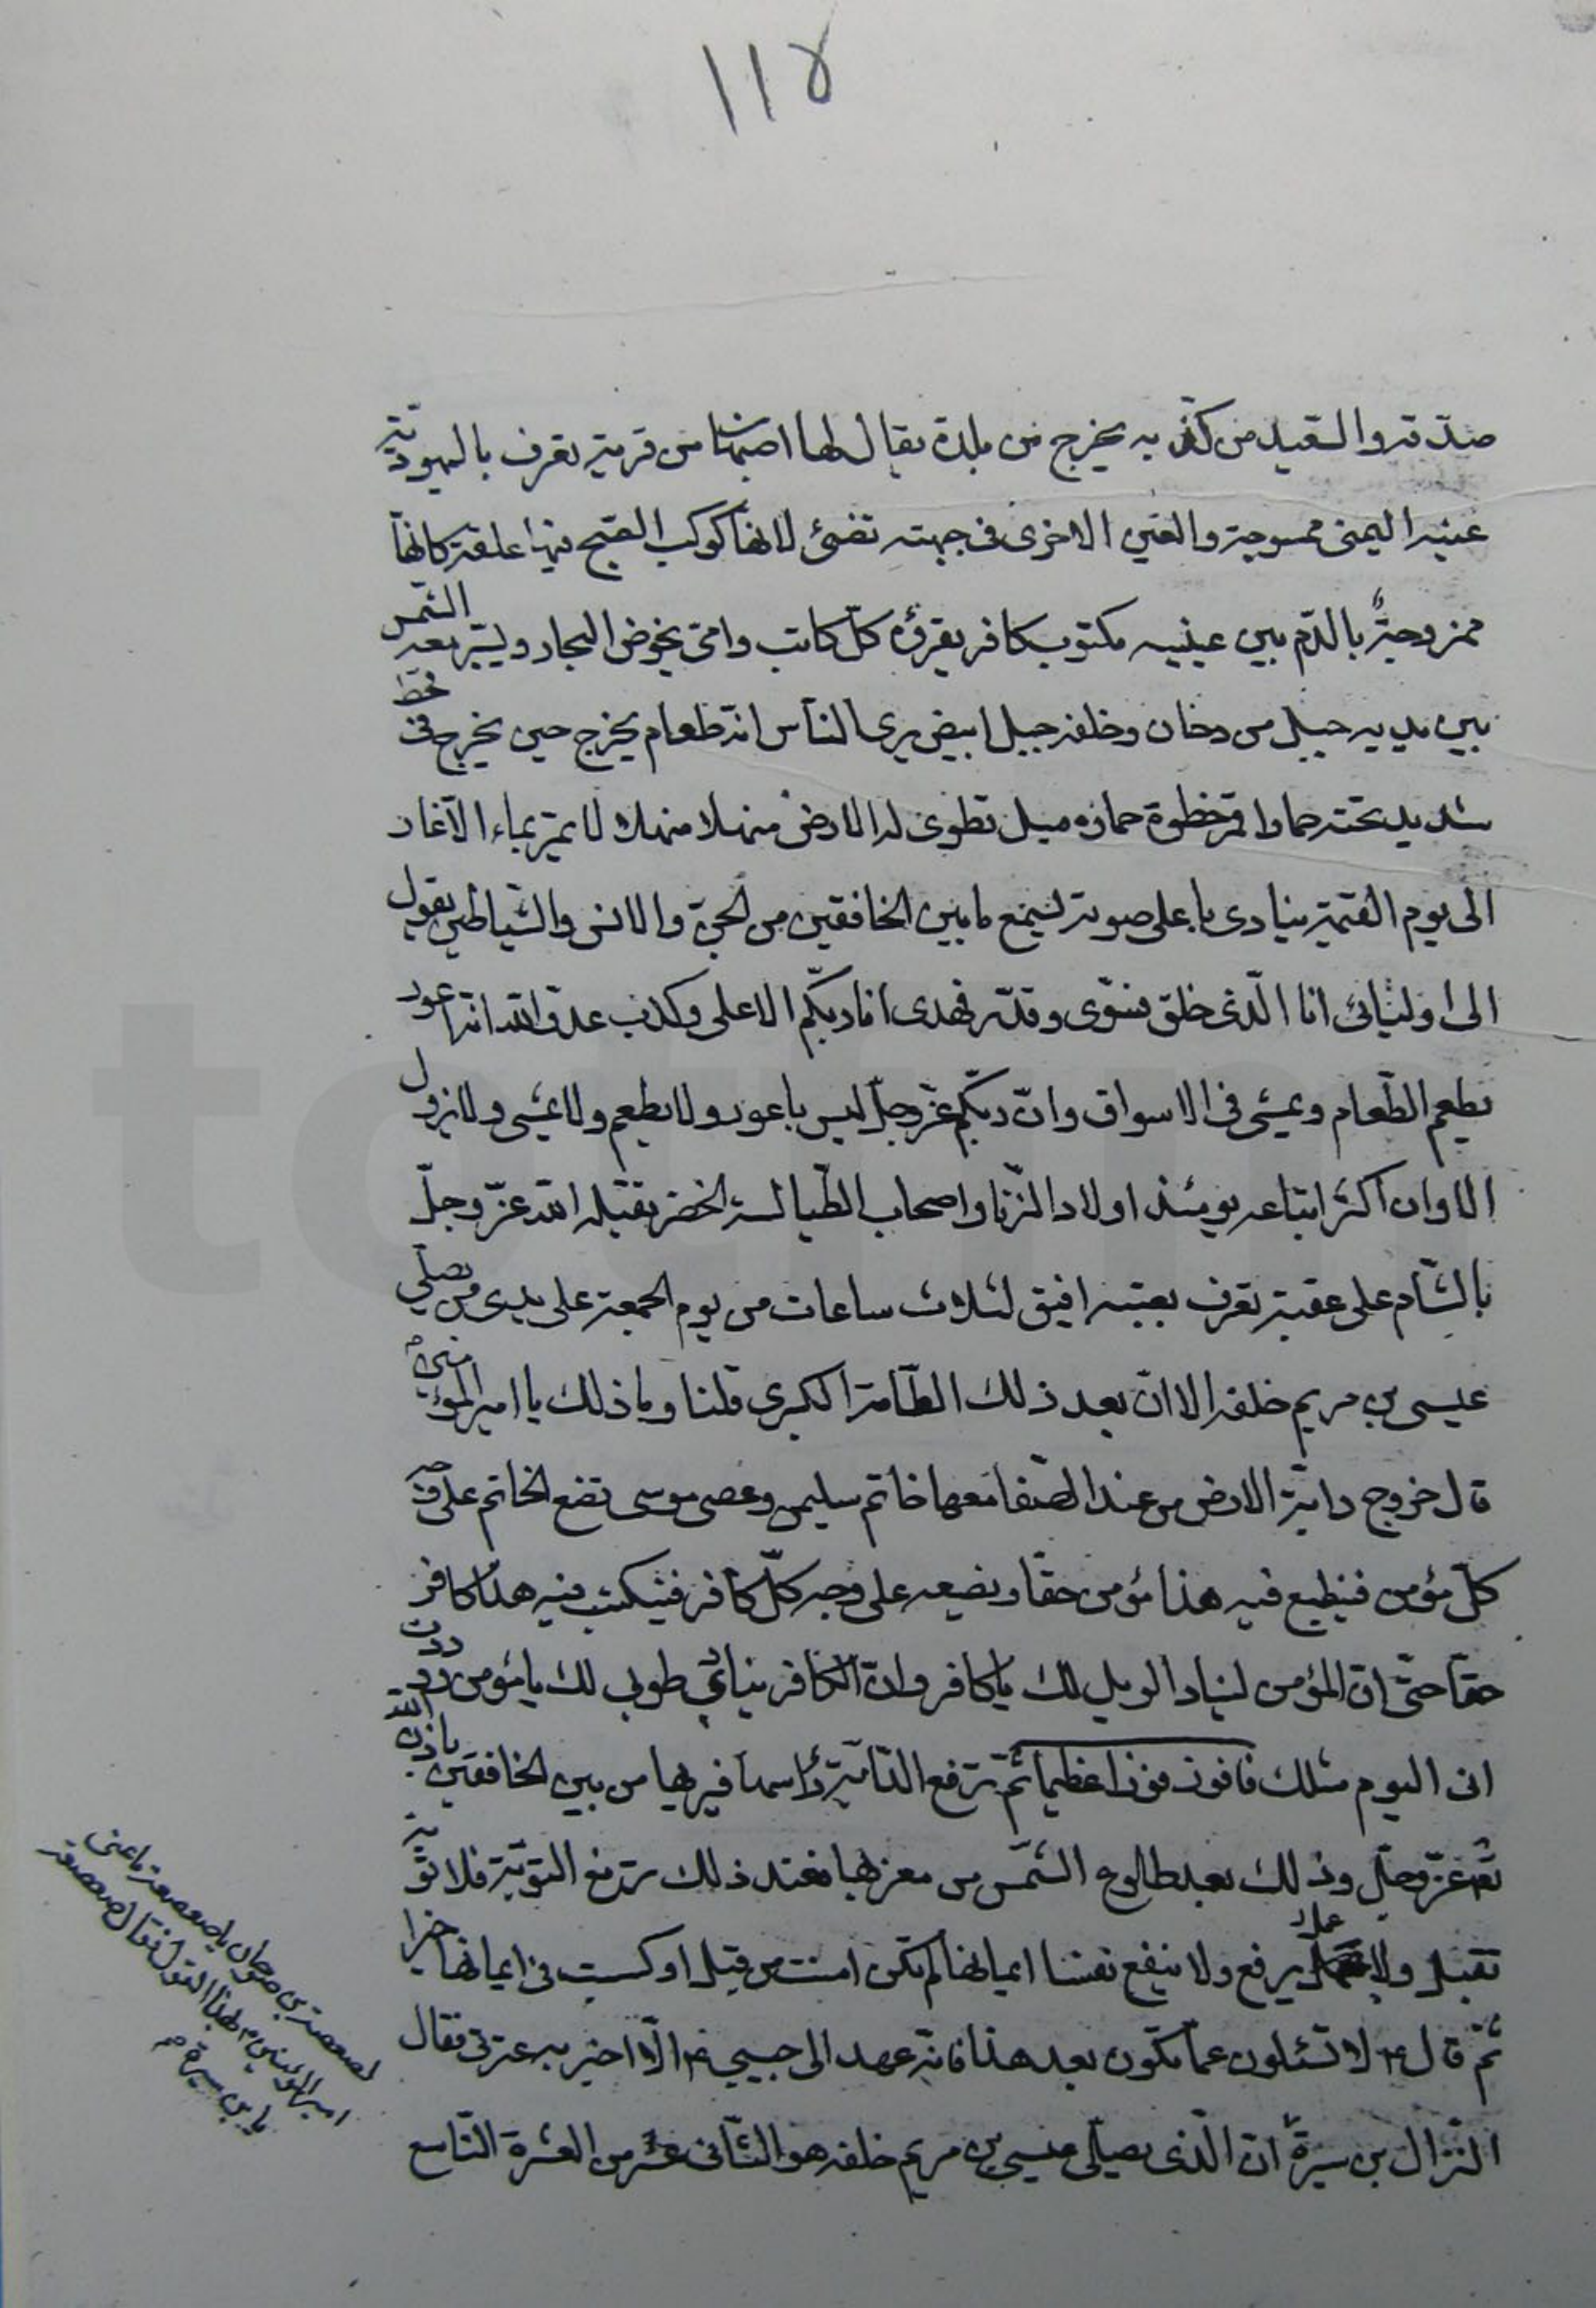 ١١٥
صدّقه والسعيد من كذّبه يخرج من بلدة يقال لها اصبهان من قرية تعرف باليهودية
عينه اليمنى ممسوحة والعين الاخرى فى جبهته تضئ كانها كوكب الصبح فيها علقة كانها
ممزوجة بالدم بين عينيه مكتوب كافر يقرؤه كلّ كاتب وامّى يخوض البحار ويسير معه الشمس
بين يديه جبل من دخان وخلفه جبل ابيض يرى الناس انه طعام يخرج حين يخرج فى قحط
شديد تحته حمار اقمر خطوة حماره ميل تطوى له الارض منهلا منهلا لا يمرّ بماء الّا غار
الى يوم القيمة ينادى باعلى صوته يسمع ما بين الخافقين من الجن والانس والشياطين يقول
الى اوليائى انا الّذى خلق فسوّى وقدّر فهدى انا ربّكم الاعلى وكذب عدوّ الله انه اعور
يطعم الطّعام ويمشى فى الاسواق وانّ ربّكم عزّ وجلّ ليس باعور ولا يطعم ولا يمشى ولا يزول
الا وان اكثر اتباعه يومئذ اولاد الزّنا واصحاب الطّيالسة الخضر يقتله الله عزّ وجلّ
بالشّام على عقبة تعرف بعقبة افيق لثلاث ساعات من يوم الجمعة على يدى من يصلّى
عيسى بن مريم خلفه الا انّ بعد ذلك الطّامة الكبرى قلنا وما ذلك يا امير المؤمنين
قال خروج دابّة الارض من عند الصّفا معها خاتم سليمن وعصى موسى تضع الخاتم على وجه
كلّ مؤمن فينطبع فيه هذا مؤمن حقّا وتضعه على وجه كلّ كافر فيكتب فيه هذا كافر
حقّا حتّى انّ المؤمن لينادى الويل لك يا كافر وانّ الكافر ينادى طوبى لك يا مؤمن وددت
انى اليوم مثلك فافوز فوزا عظيما ثمّ ترفع الدّابّة رأسها فيريها من بين الخافقين باذن الله
عزّ وجلّ وذلك بعد طلوع الشّمس من مغربها فعند ذلك ترفع التّوبة فلا توبة
تقبل ولا عمل يرفع ولا ينفع نفسا ايمانها لم تكن امنت من قبل او كسبت فى ايمانها خيرا
ثمّ قال لا تسئلون عمّا يكون بعد هذا فانّه عهد الى حبيبى الّا اخبر به عترتى فقال
النّزال بن سبرة انّ الّذى يصلّى عيسى بن مريم خلفه هو الثّانى عشر من العترة التّاسع
لصعصعة بن صوحان يا صعصعة ما عنى
امير المؤمنين بهذا القول فقال صعصعة
يا بن سبرة